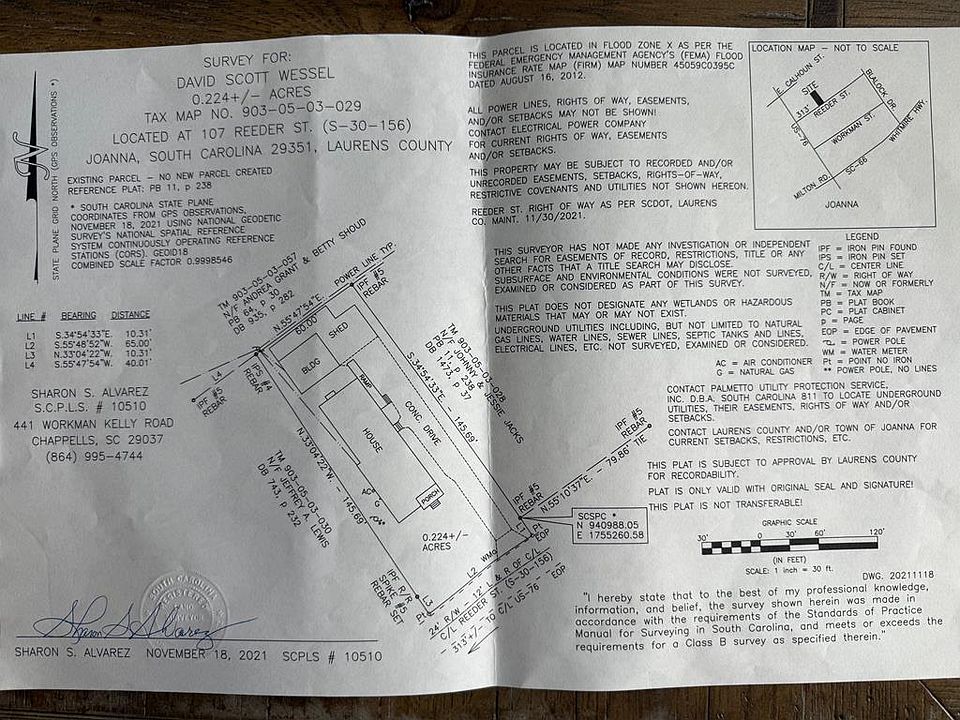 SURVEY FOR:
DAVID SCOTT WESSEL
0.224+/- ACRES
TAX MAP NO. 903-05-03-029
LOCATED AT 107 REEDER ST. (S-30-156)
JOANNA, SOUTH CAROLINA 29351, LAURENS COUNTY
EXISTING PARCEL - NO NEW PARCEL CREATED
REFERENCE PLAT: PB 11, p 238
* SOUTH CAROLINA STATE PLANE
COORDINATES FROM GPS OBSERVATIONS,
NOVEMBER 18, 2021 USING NATIONAL GEODETIC
SURVEY'S NATIONAL SPATIAL REFERENCE
SYSTEM CONTINUOUSLY OPERATING REFERENCE
STATIONS (CORS). GEOID18
COMBINED SCALE FACTOR 0.9998546
N
STATE PLANE GRID NORTH (GPS OBSERVATIONS *)
LINE # BEARING DISTANCE
L1 S.34°54'33"E 10.31'
L2 S.55°48'52"W. 65.00'
L3 N.33°04'22"W. 10.31'
L4 S.55°47'54"W. 40.01'
SHARON S. ALVAREZ
S.C.P.L.S. # 10510
441 WORKMAN KELLY ROAD
CHAPPELLS, SC 29037
(864) 995-4744
TM 903-05-03-057
N/F ANDREA GRANT & BETTY SHOUD
PB 64, p 30
DB 935, p 282
N.55°47'54"E.
60.00'
POWER LINE TYP.
IPF #5
REBAR
L4
IPF #5
REBAR
IPS #4
REBAR
SHED
BLDG
RAMP
HOUSE
CONC. DRIVE
PORCH
AC
G
S.34°54'33"E. - 145.69'
TM 903-05-03-028
N/F JOHNNY & JESSIE JACKS
PB 11, p 238
DB 1473, p 37
N.33°04'22"W. - 145.69'
TM 903-05-03-030
N/F JEFFREY A. LEWIS
DB 743, p 232
0.224+/-
ACRES
IPF #5
REBAR
N.55°10'37"E. - 79.86' TIE
IPF #5
REBAR
L1
Pt
EOP
SCSPC *
N 940988.05
E 1755260.58
WM
L2
12' L & R OF C/L
24' R/W
C/L REEDER ST. (S-30-156)
EOP
313'+/- TO C/L US-76
IPF R/R
SPIKE #5
REBAR
SET
L3
Pt
SOUTH CAROLINA
Sharon S Alvarez
SHARON S. ALVAREZ NOVEMBER 18, 2021 SCPLS # 10510
THIS PARCEL IS LOCATED IN FLOOD ZONE X AS PER THE
FEDERAL EMERGENCY MANAGEMENT AGENCY'S (FEMA) FLOOD
INSURANCE RATE MAP (FIRM) MAP NUMBER 45059C0395C
DATED AUGUST 16, 2012.
ALL POWER LINES, RIGHTS OF WAY, EASEMENTS,
AND/OR SETBACKS MAY NOT BE SHOWN!
CONTACT ELECTRICAL POWER COMPANY
FOR CURRENT RIGHTS OF WAY, EASEMENTS
AND/OR SETBACKS.
THIS PROPERTY MAY BE SUBJECT TO RECORDED AND/OR
UNRECORDED EASEMENTS, SETBACKS, RIGHTS-OF-WAY,
RESTRICTIVE COVENANTS AND UTILITIES NOT SHOWN HEREON.
REEDER ST. RIGHT OF WAY AS PER SCDOT, LAURENS
CO. MAINT. 11/30/2021.
THIS SURVEYOR HAS NOT MADE ANY INVESTIGATION OR INDEPENDENT
SEARCH FOR EASEMENTS OF RECORD, RESTRICTIONS, TITLE OR ANY
OTHER FACTS THAT A TITLE SEARCH MAY DISCLOSE.
SUBSURFACE AND ENVIRONMENTAL CONDITIONS WERE NOT SURVEYED,
EXAMINED OR CONSIDERED AS PART OF THIS SURVEY.
THIS PLAT DOES NOT DESIGNATE ANY WETLANDS OR HAZARDOUS
MATERIALS THAT MAY OR MAY NOT EXIST.
UNDERGROUND UTILITIES INCLUDING, BUT NOT LIMITED TO NATURAL
GAS LINES, WATER LINES, SEWER LINES, SEPTIC TANKS AND LINES,
ELECTRICAL LINES, ETC. NOT SURVEYED, EXAMINED OR CONSIDERED.
LOCATION MAP - NOT TO SCALE
E CALHOUN ST.
SITE
313'
REEDER ST.
BLALOCK DR
WORKMAN ST.
WHITMIRE HWY.
US-76
SC-66
MILTON RD.
JOANNA
LEGEND
IPF = IRON PIN FOUND
IPS = IRON PIN SET
C/L = CENTER LINE
R/W = RIGHT OF WAY
N/F = NOW OR FORMERLY
TM = TAX MAP
PB = PLAT BOOK
PC = PLAT CABINET
p = PAGE
EOP = EDGE OF PAVEMENT
= POWER POLE
WM = WATER METER
Pt = POINT NO IRON
** POWER POLE, NO LINES
AC = AIR CONDITIONER
G = NATURAL GAS
CONTACT PALMETTO UTILITY PROTECTION SERVICE,
INC. D.B.A. SOUTH CAROLINA 811 TO LOCATE UNDERGROUND
UTILITIES, THEIR EASEMENTS, RIGHTS OF WAY AND/OR
SETBACKS.
CONTACT LAURENS COUNTY AND/OR TOWN OF JOANNA FOR
CURRENT SETBACKS, RESTRICTIONS, ETC.
THIS PLAT IS SUBJECT TO APPROVAL BY LAURENS COUNTY
FOR RECORDABILITY.
PLAT IS ONLY VALID WITH ORIGINAL SEAL AND SIGNATURE!
THIS PLAT IS NOT TRANSFERABLE!
GRAPHIC SCALE
30' 0 30' 60' 120'
(IN FEET)
SCALE: 1 inch = 30 ft.
DWG. 20211118
"I hereby state that to the best of my professional knowledge,
information, and belief, the survey shown herein was made in
accordance with the requirements of the Standards of Practice
Manual for Surveying in South Carolina, and meets or exceeds the
requirements for a Class B survey as specified therein."